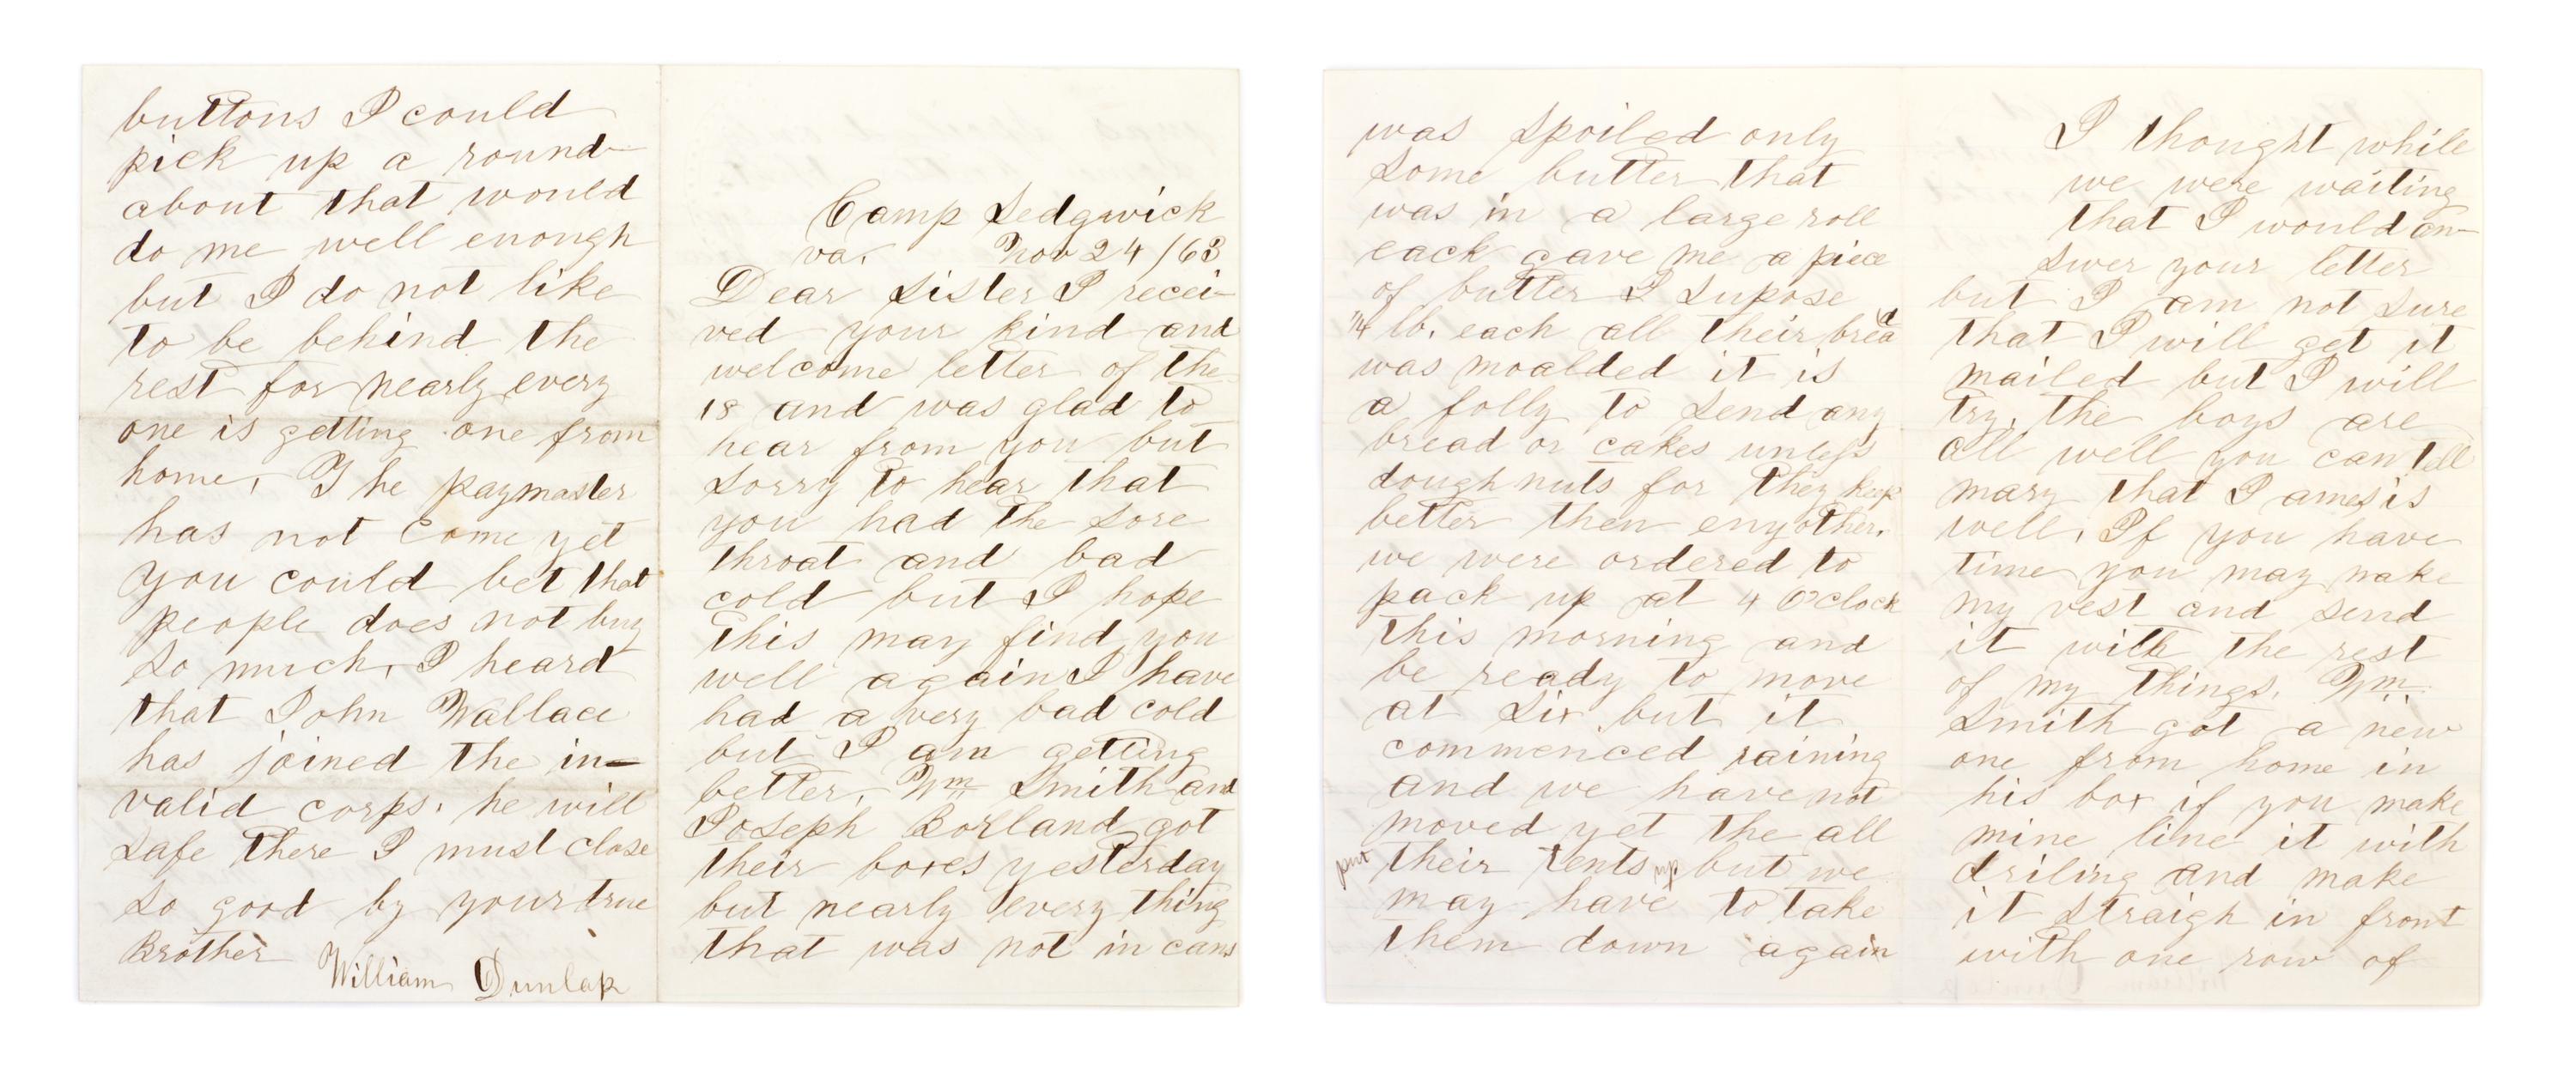 Camp Sedgwick
va. Nov 24 /63
Dear Sister I recei-
ved your kind and
welcome letter of the
18 and was glad to
hear from you but
sorry to hear that
you had the sore
throat and bad
cold but I hope
this may find you
well again I have
had a very bad cold
but I am getting
better, Wm Smith and
Joseph Borland got
their boxes yesterday
but nearly every thing
that was not in cans
was spoiled only
some butter that
was in a large roll
each gave me a piece
of butter I supose
1/4 lb. each all their bread
was moalded it is
a folly to send any
bread or cakes unless
doughnuts for they keep
better then enyother.
we were ordered to
pack up at 4 O'clock
this morning and
be ready to move
at six but it
commenced raining
and we have not
moved yet the all
put their tents up but we
may have to take
them down again
I thought while
we were waiting
that I would an-
swer your letter
but I am not sure
that I will get it
mailed but I will
try. the boys are
all well you can tell
mary that James is
well, If you have
time you may make
my vest and send
it with the rest
of my things. Wm
Smith got a new
one from home in
his box if you make
mine line it with
driling and make
it straigh in front
with one row of
buttons I could
pick up a round-
about that would
do me well enough
but I do not like
to be behind the
rest for nearly every
one is getting one from
home, The paymaster
has not come yet
you could bet that
people does not buy
so much, I heard
that John Wallace
has joined the in-
valid corps. he will
safe there I must close
so good by your true
Brother William Dunlap